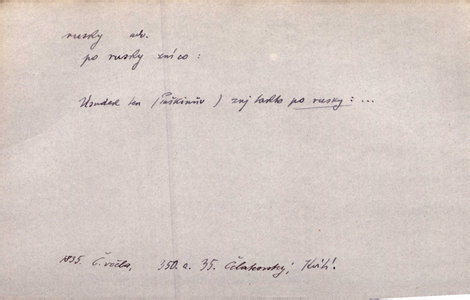 rusky adv.
po rusky zníco:
Úsudek ten (Puškinův) zní takto po rusky: ...
1835. Č. včela, 350. a. 35. Čelakovský; Květ!.